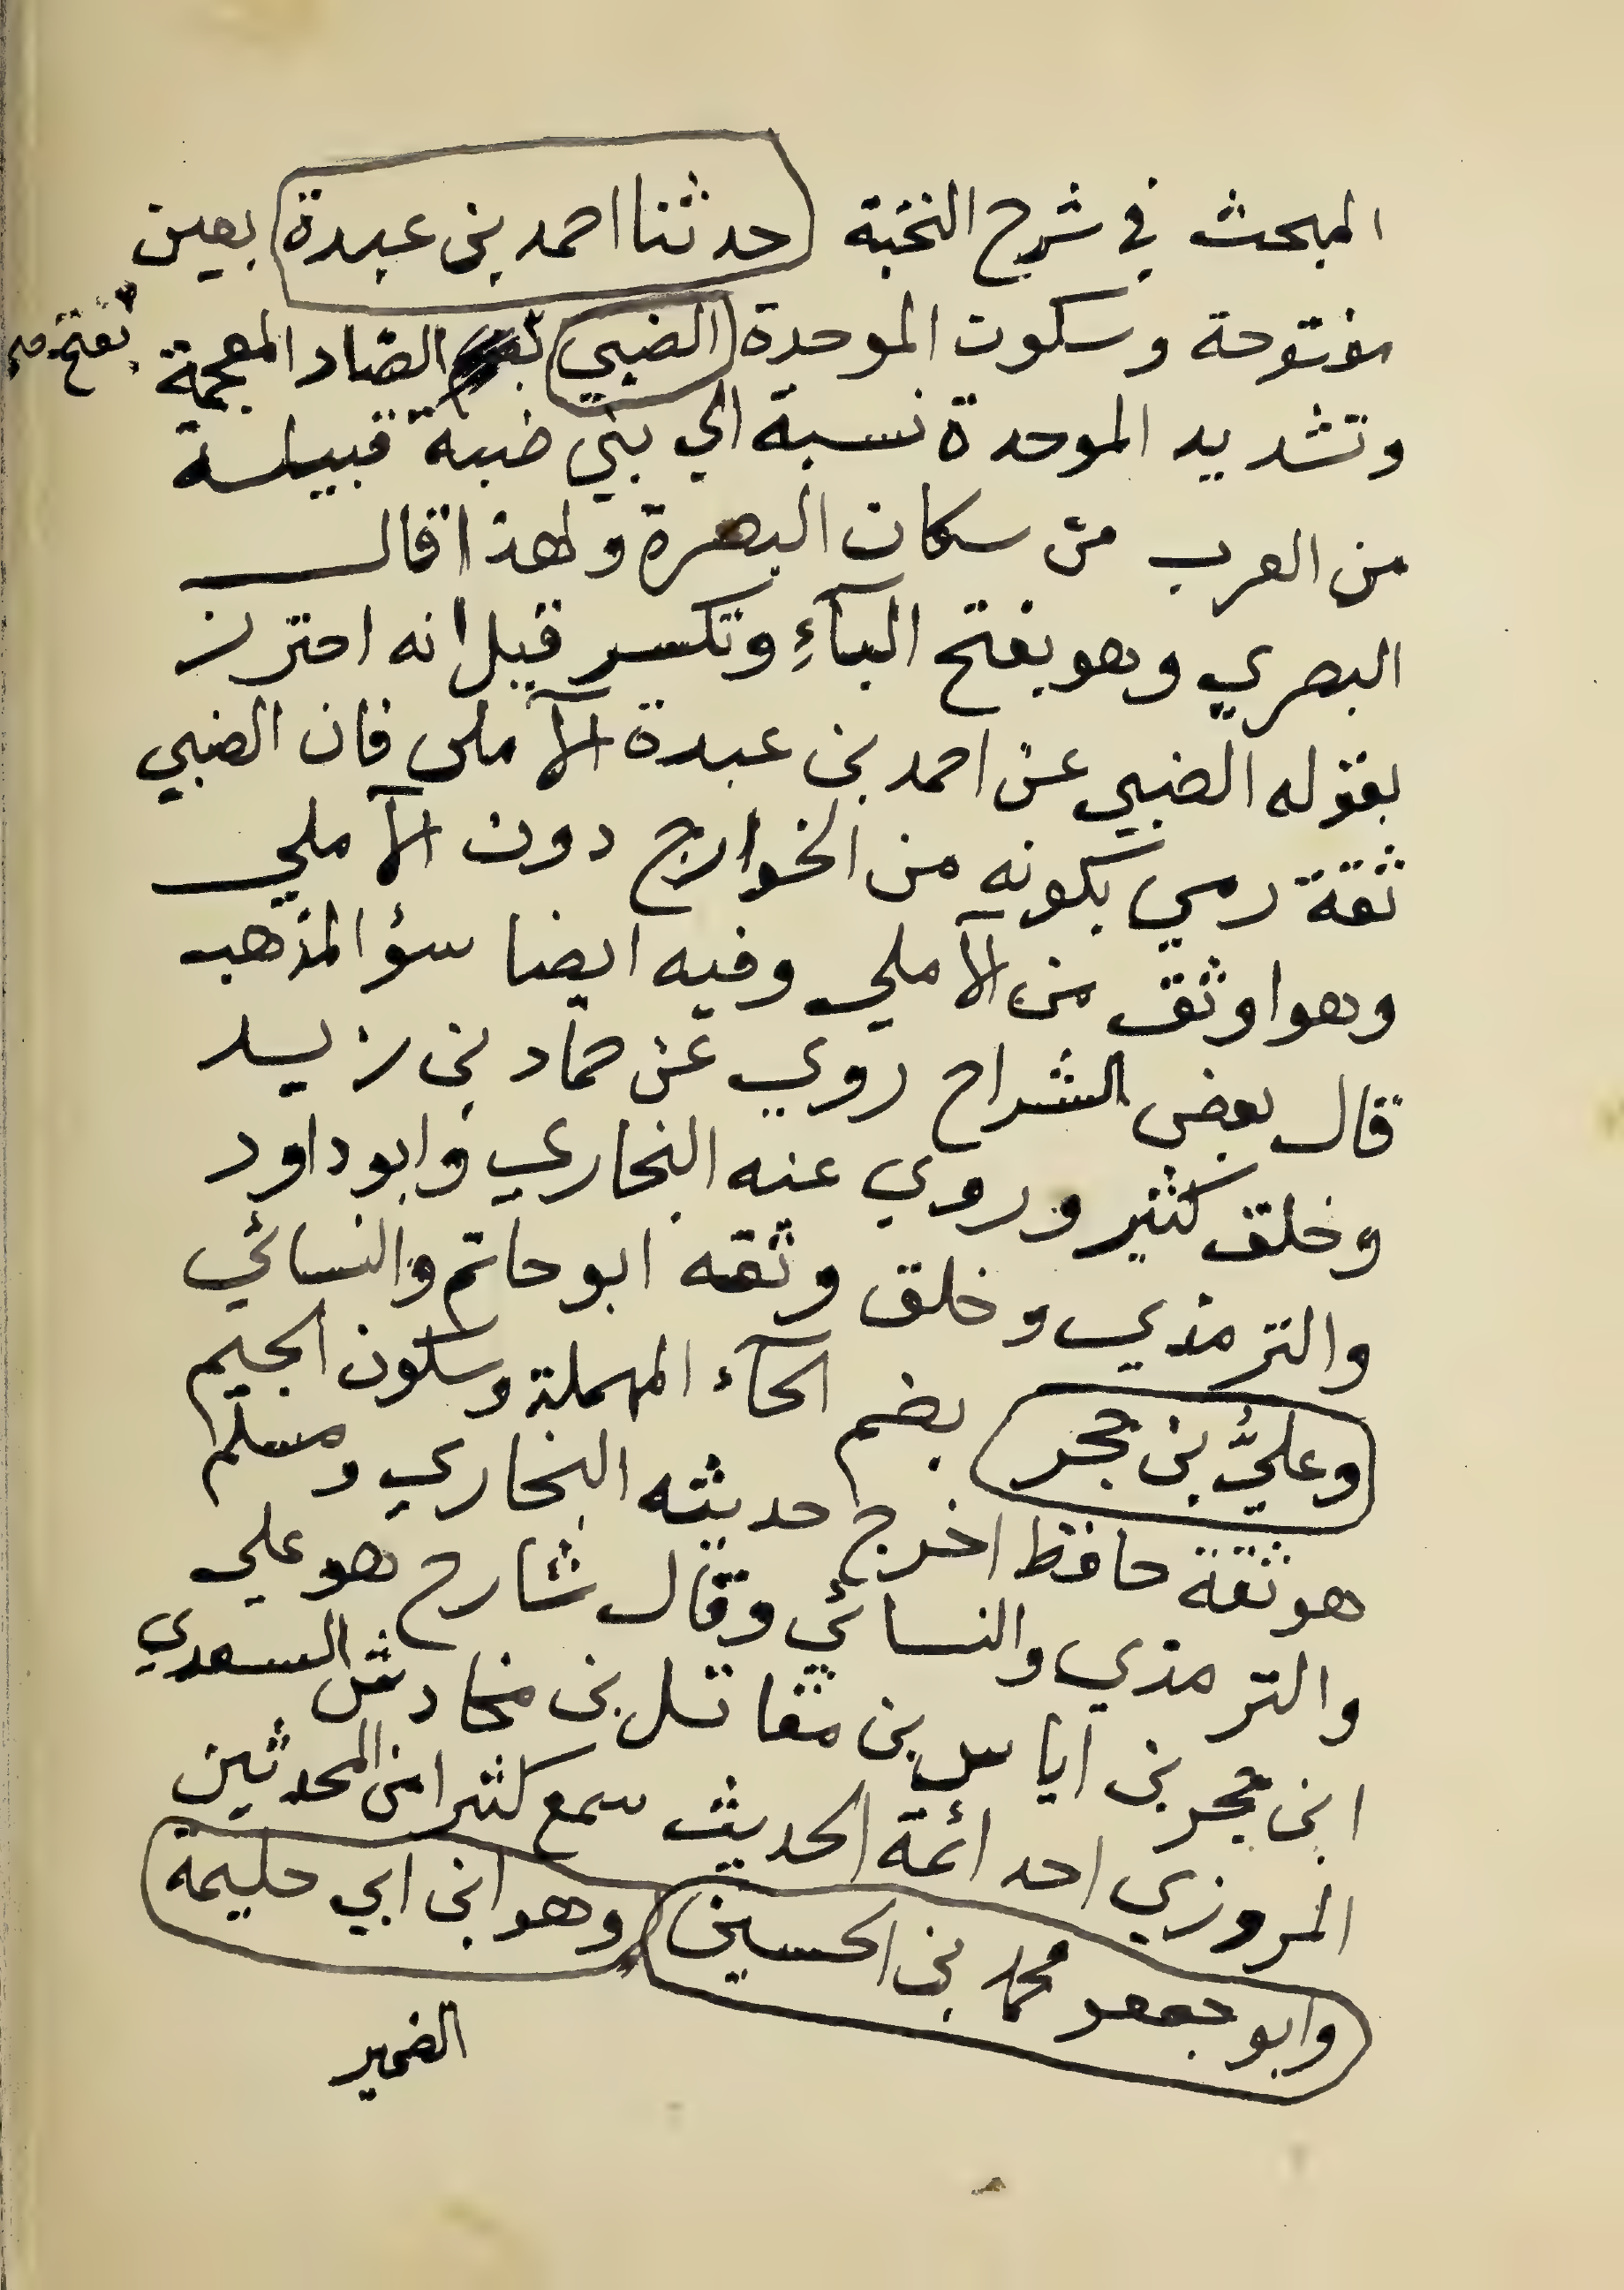 المبحث في شرح النخبة (حدثنا احمد بن عبدة) بعين
مفتوحة وسكون الموحدة (الضبي) الضاد المعجمة
بفتح صح
وتشديد الموحدة نسبة الي بني ضبة قبيلة
من العرب من سكان البصرة ولهذا قال
البصري وهو بفتح البآءِ وتكسر قيل انه احترز
بقوله الضبي عن احمد بن عبدة الآملي فان الضبي
ثقة رمي بكونه من الخوارج دون الآملي
وهو اوثق من الآملي وفيه ايضا سؤ المذهب
قال بعض الشراح روي عن حماد بن زيد
وخلق كثير وروي عنه البخاري وابو داود
والترمذي وخلق وثقه ابو حاتم والنسائي
(وعليُّ بن حجر) بضم الحآء المهملة وسكون الجيم
هو ثقة حافظ اخرج حديثه البخاري ومسلم
والترمذي والنسائي وقال شارح هو علي
ابن حجر بن اياس بن مقاتل بن مخادش السعدي
المروزي احد ائمة الحديث سمع كثيرا من المحدثين
(وابو جعفر محمد بن الحسين) (وهو ابن ابي حليمة)
الضمير